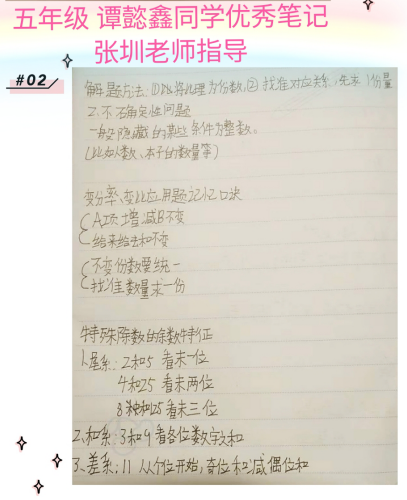 五年级 谭懿鑫同学优秀笔记
张圳老师指导
#02
解题方法:①将比理为份数,②找准对应关系,先求1份量
2.不确定性问题
一般隐藏的某些条件为整数。
(比如人数、本子的数量等)
变分率、变比应用题记忆口诀
A项增减B不变
给来给去和不变
不变份数要统一
找准数量求一份
特殊除数的余数特征
1.尾系:2和5 看末一位
4和25 看末两位
8和125看末三位
2、和系:3和9看各位数字之和
3、差系:11 从个位开始,奇位和减偶位和